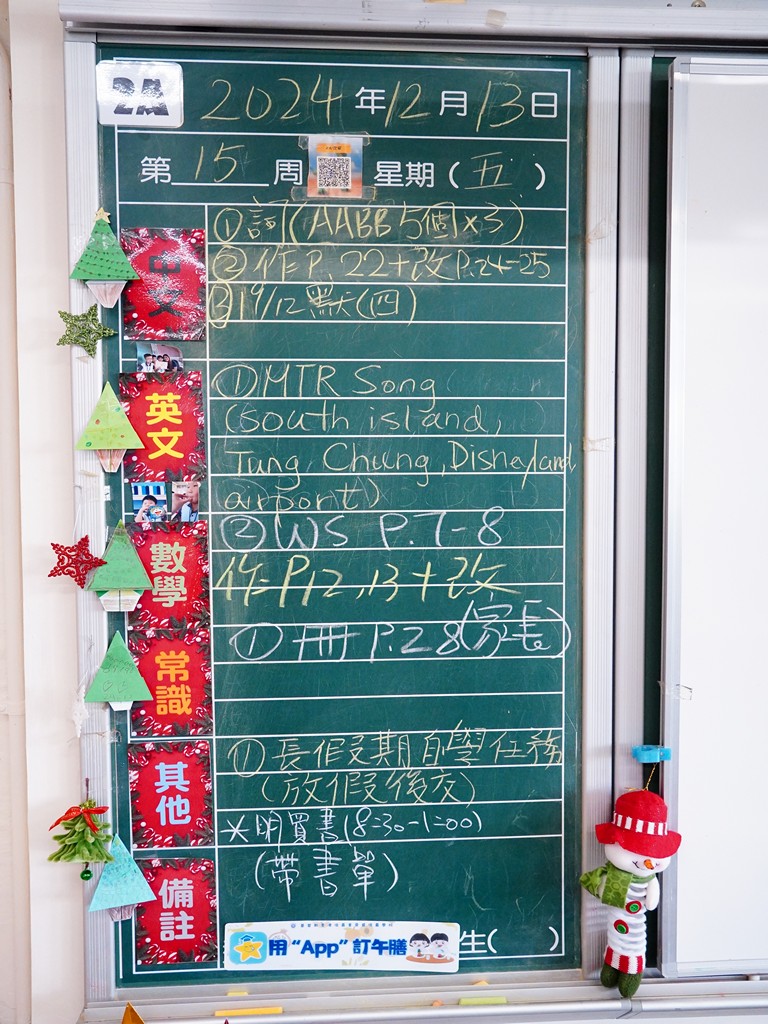 2A
2024年12月13日
第15周 星期(五)
中文
①詞(AABB 5個x3)
②作P.22+改P.24-25
③19/12 默(四)
英文
①MTR Song
(South island,
Tung Chung, Disneyland,
airport)
②WS P.7-8
數學
作P.12,13+改
常識
①冊P.28(家長)
其他
①長假期自學任務
(放假後交)
*明買書(8:30-1:00)
備註
(帶書單)
用“App”訂午膳
生( )